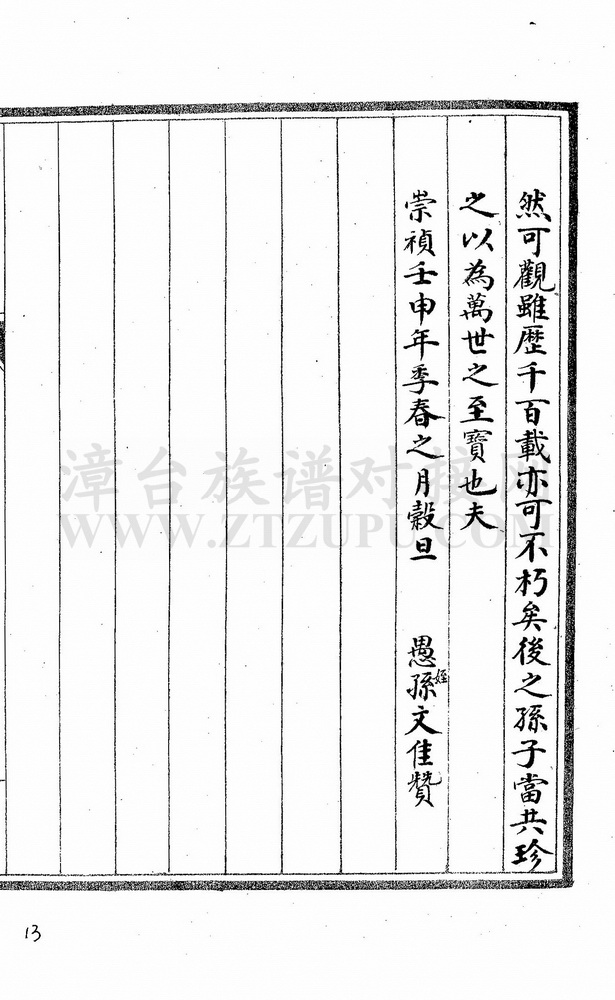 然可觀雖歷千百載亦可不朽矣後之孫子當共珍
之以為萬世之至寶也夫
崇禎壬申年季春之月穀旦 愚姪孫文佳贊
漳台族谱对接网
WWW.ZTZUPU.COM
13